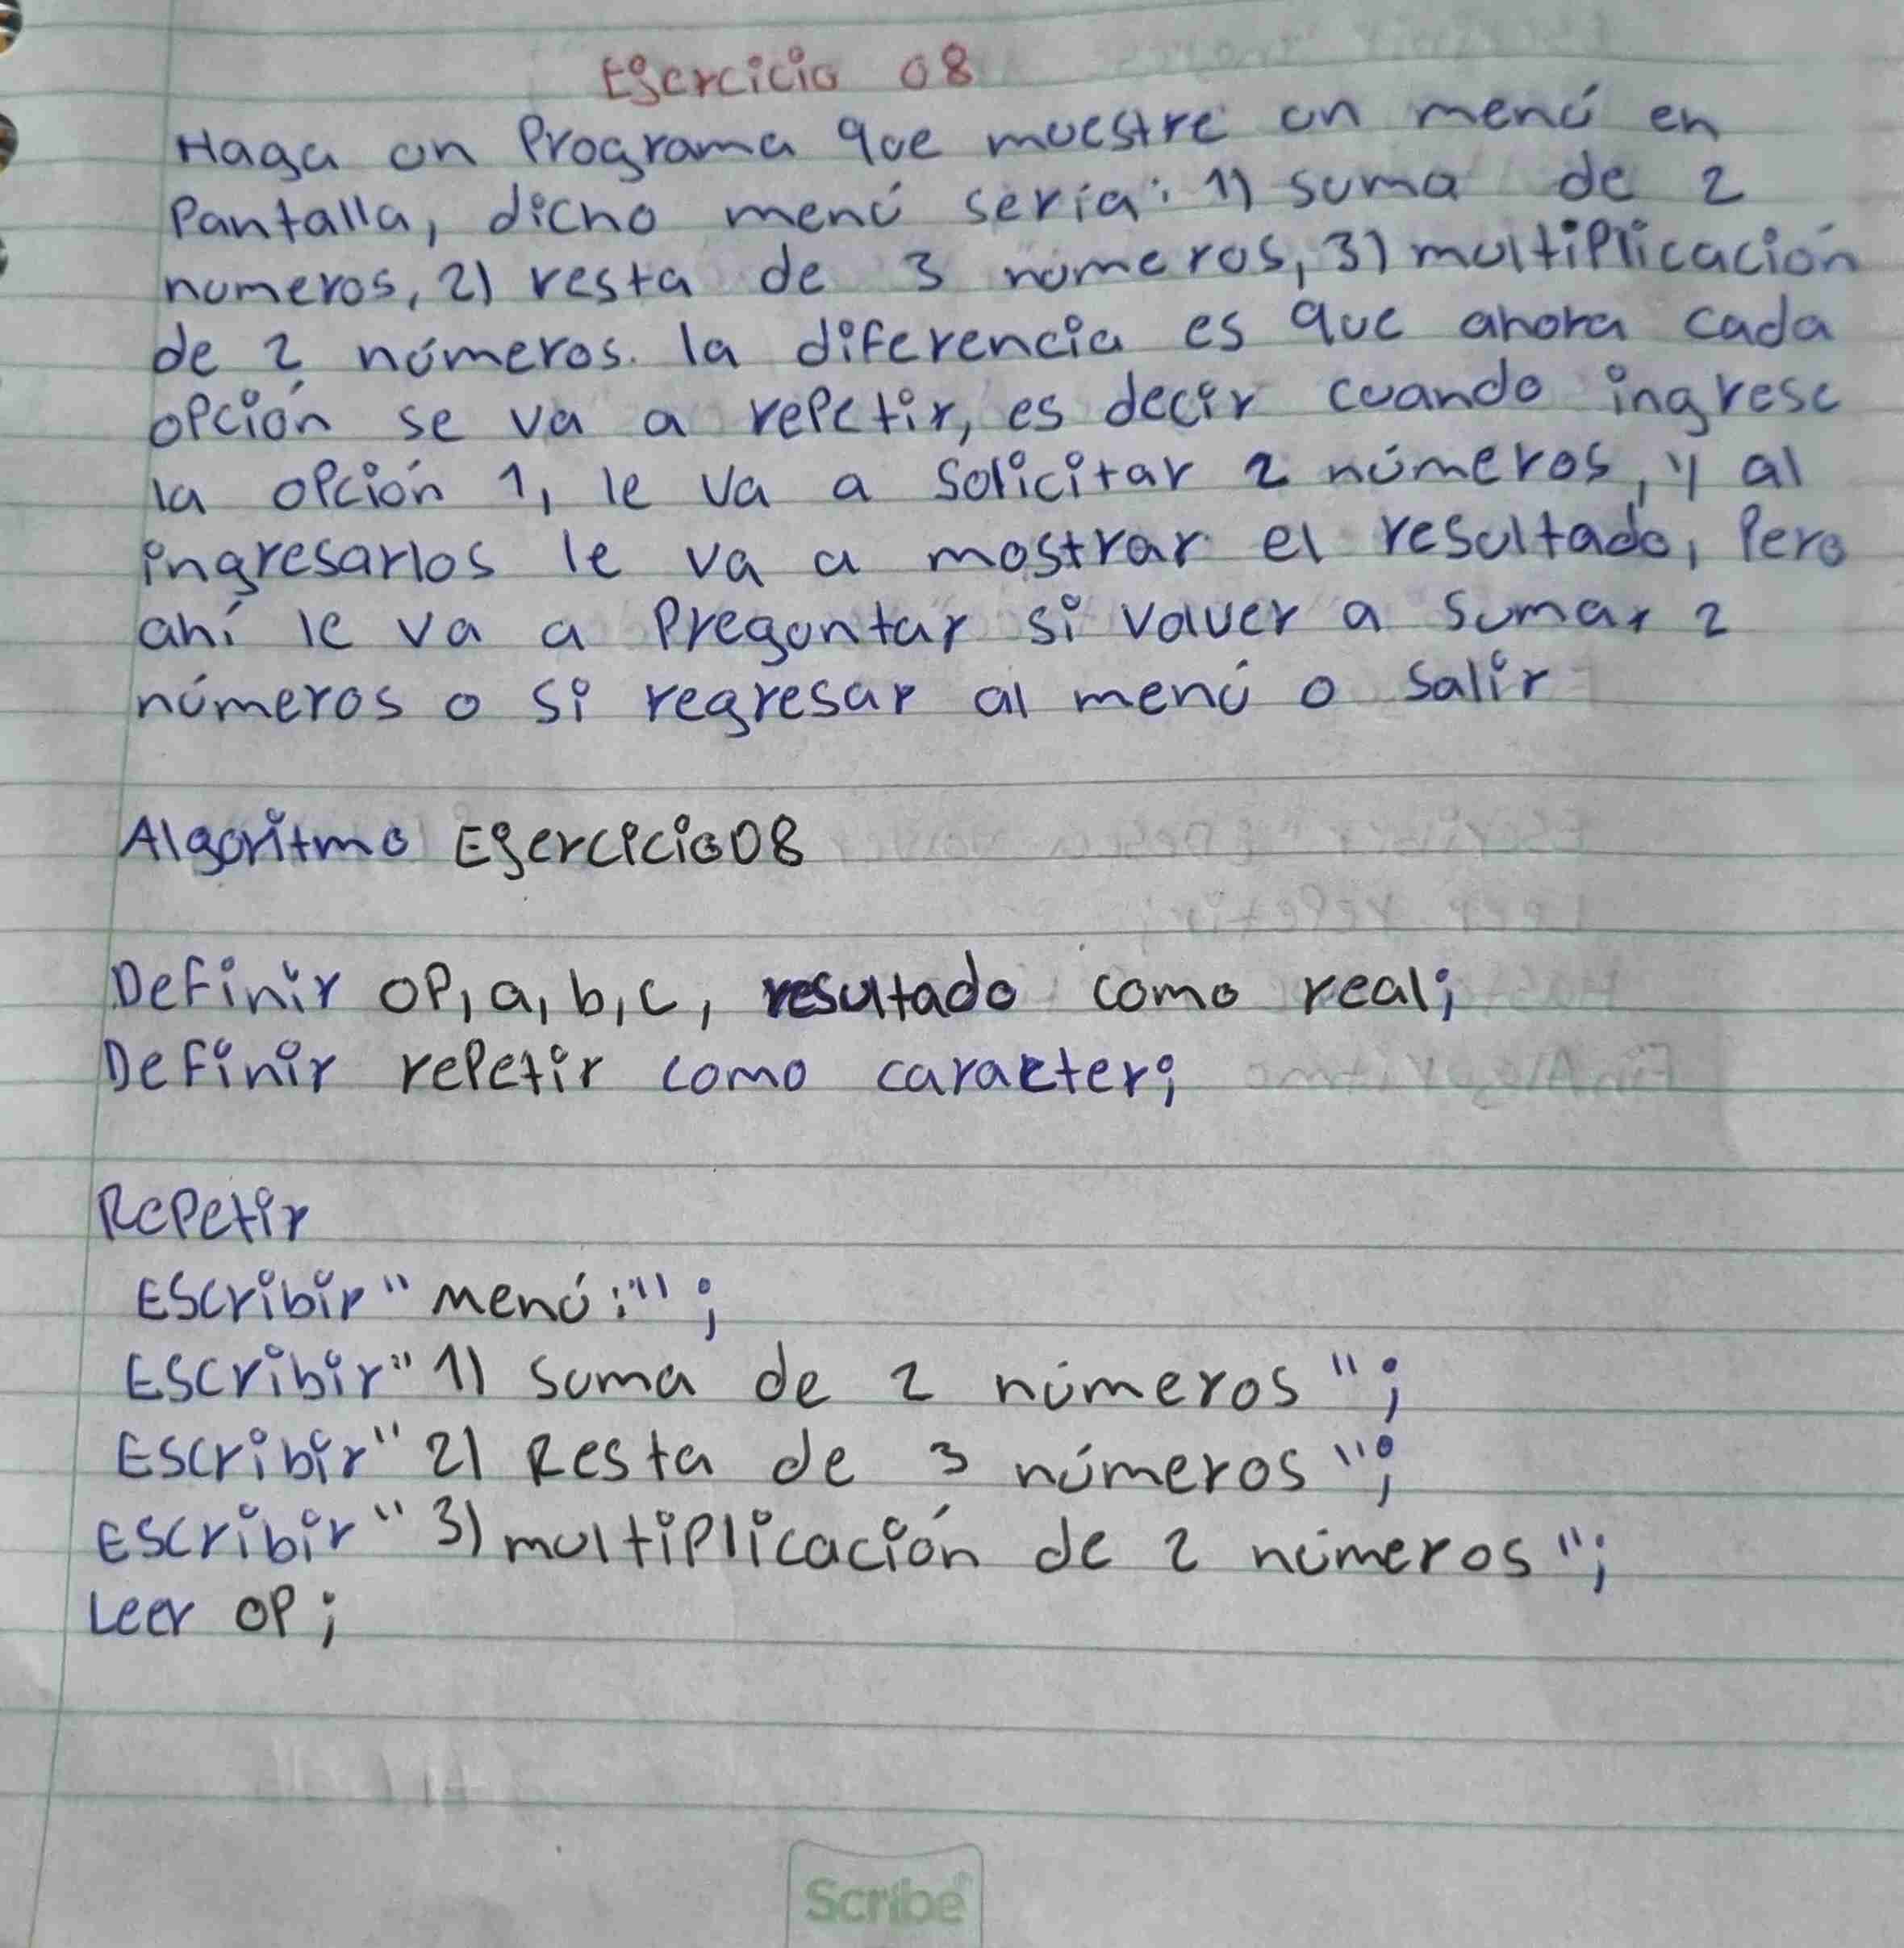 Ejercicio 08
Haga un Programa que muestre un menú en
Pantalla, dicho menú sería: 1) suma de 2
numeros, 2) resta de 3 números, 3) multiplicación
de 2 números. la diferencia es que ahora cada
opción se va a repetir, es decir cuando ingrese
la opción 1, le va a solicitar 2 números, y al
ingresarlos le va a mostrar el resultado, Pero
ahí le va a Preguntar si volver a sumar 2
números o si regresar al menú o salir
Algoritmo Ejercicio08
Definir OP, a, b, c, resultado como real;
Definir repetir como caracter;
Repetir
Escribir "menú:";
Escribir "1) suma de 2 números";
Escribir "2) Resta de 3 números";
Escribir "3) multiplicación de 2 números";
Leer OP;
Scribe